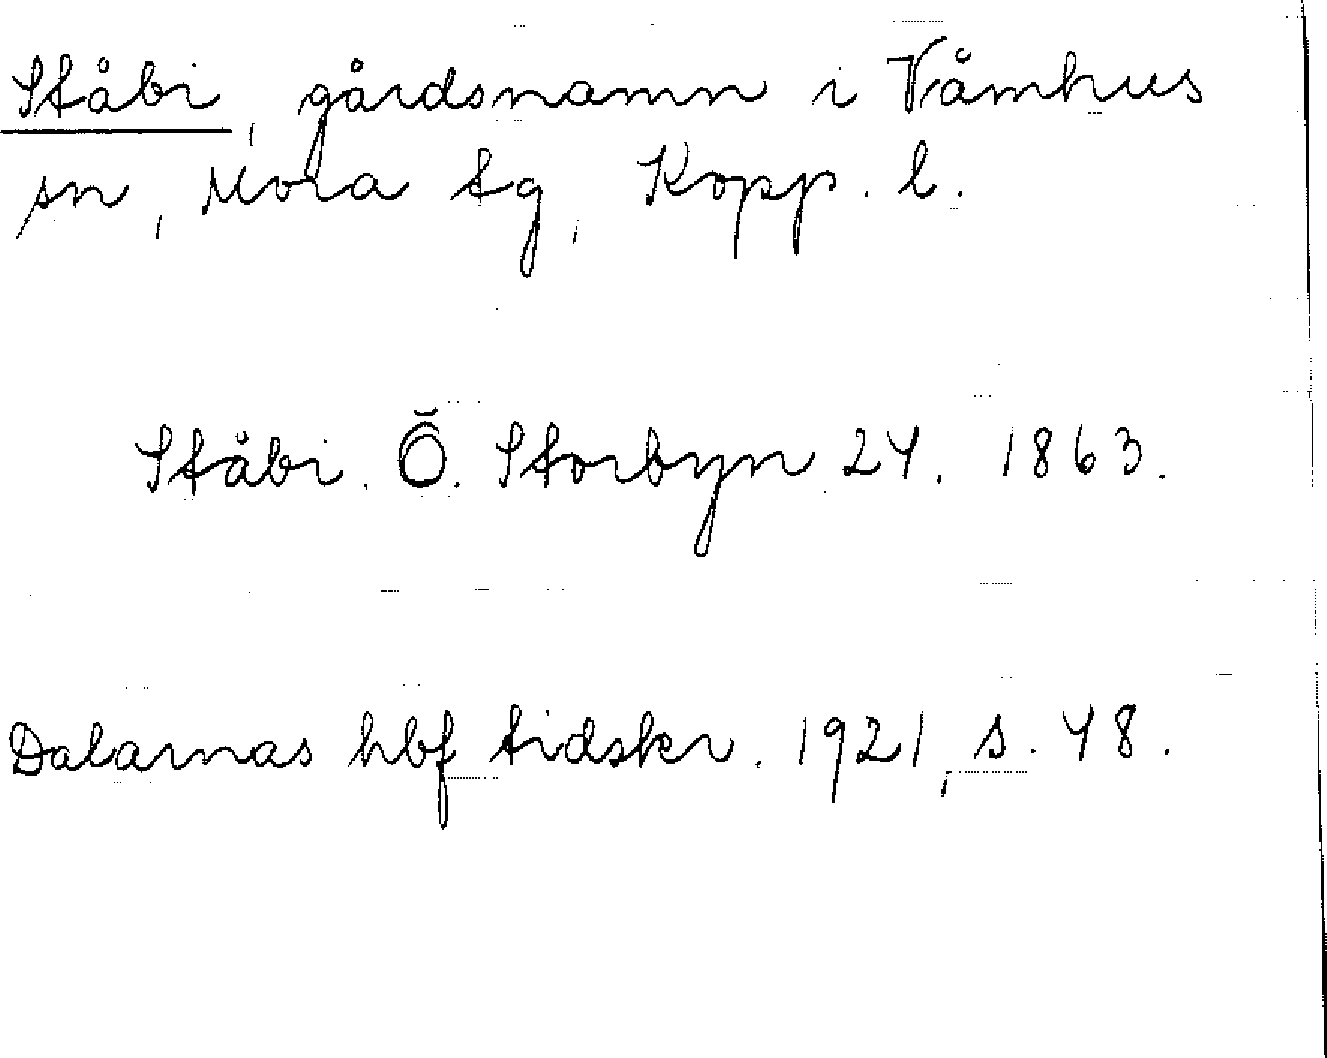 Ståbi, gårdsnamn i Våmhus
sn, Mora tg, Kopp. l.
Ståbi. Ö. Storbyn 24. 1863.
Dalarnas hbf tidskr. 1921, s. 48.